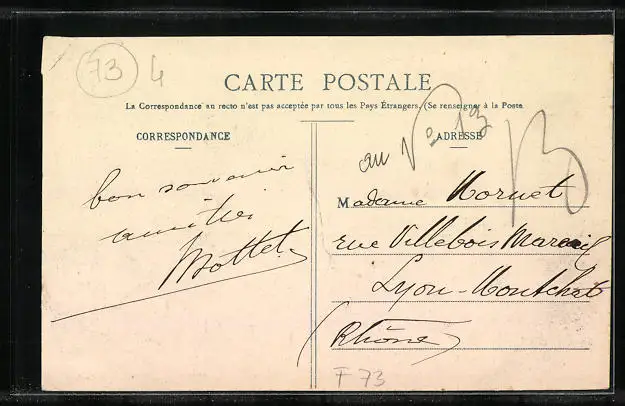 73 4
CARTE POSTALE
La Correspondance au recto n'est pas acceptée par tous les Pays Étrangers. (Se renseigner à la Poste
CORRESPONDANCE
ADRESSE
bon souvenir
amitiés
Mottet
au N° 13
13
Madame Mornet
rue Villebois Mareuil
Lyon-Montchat
(Rhône)
F 73